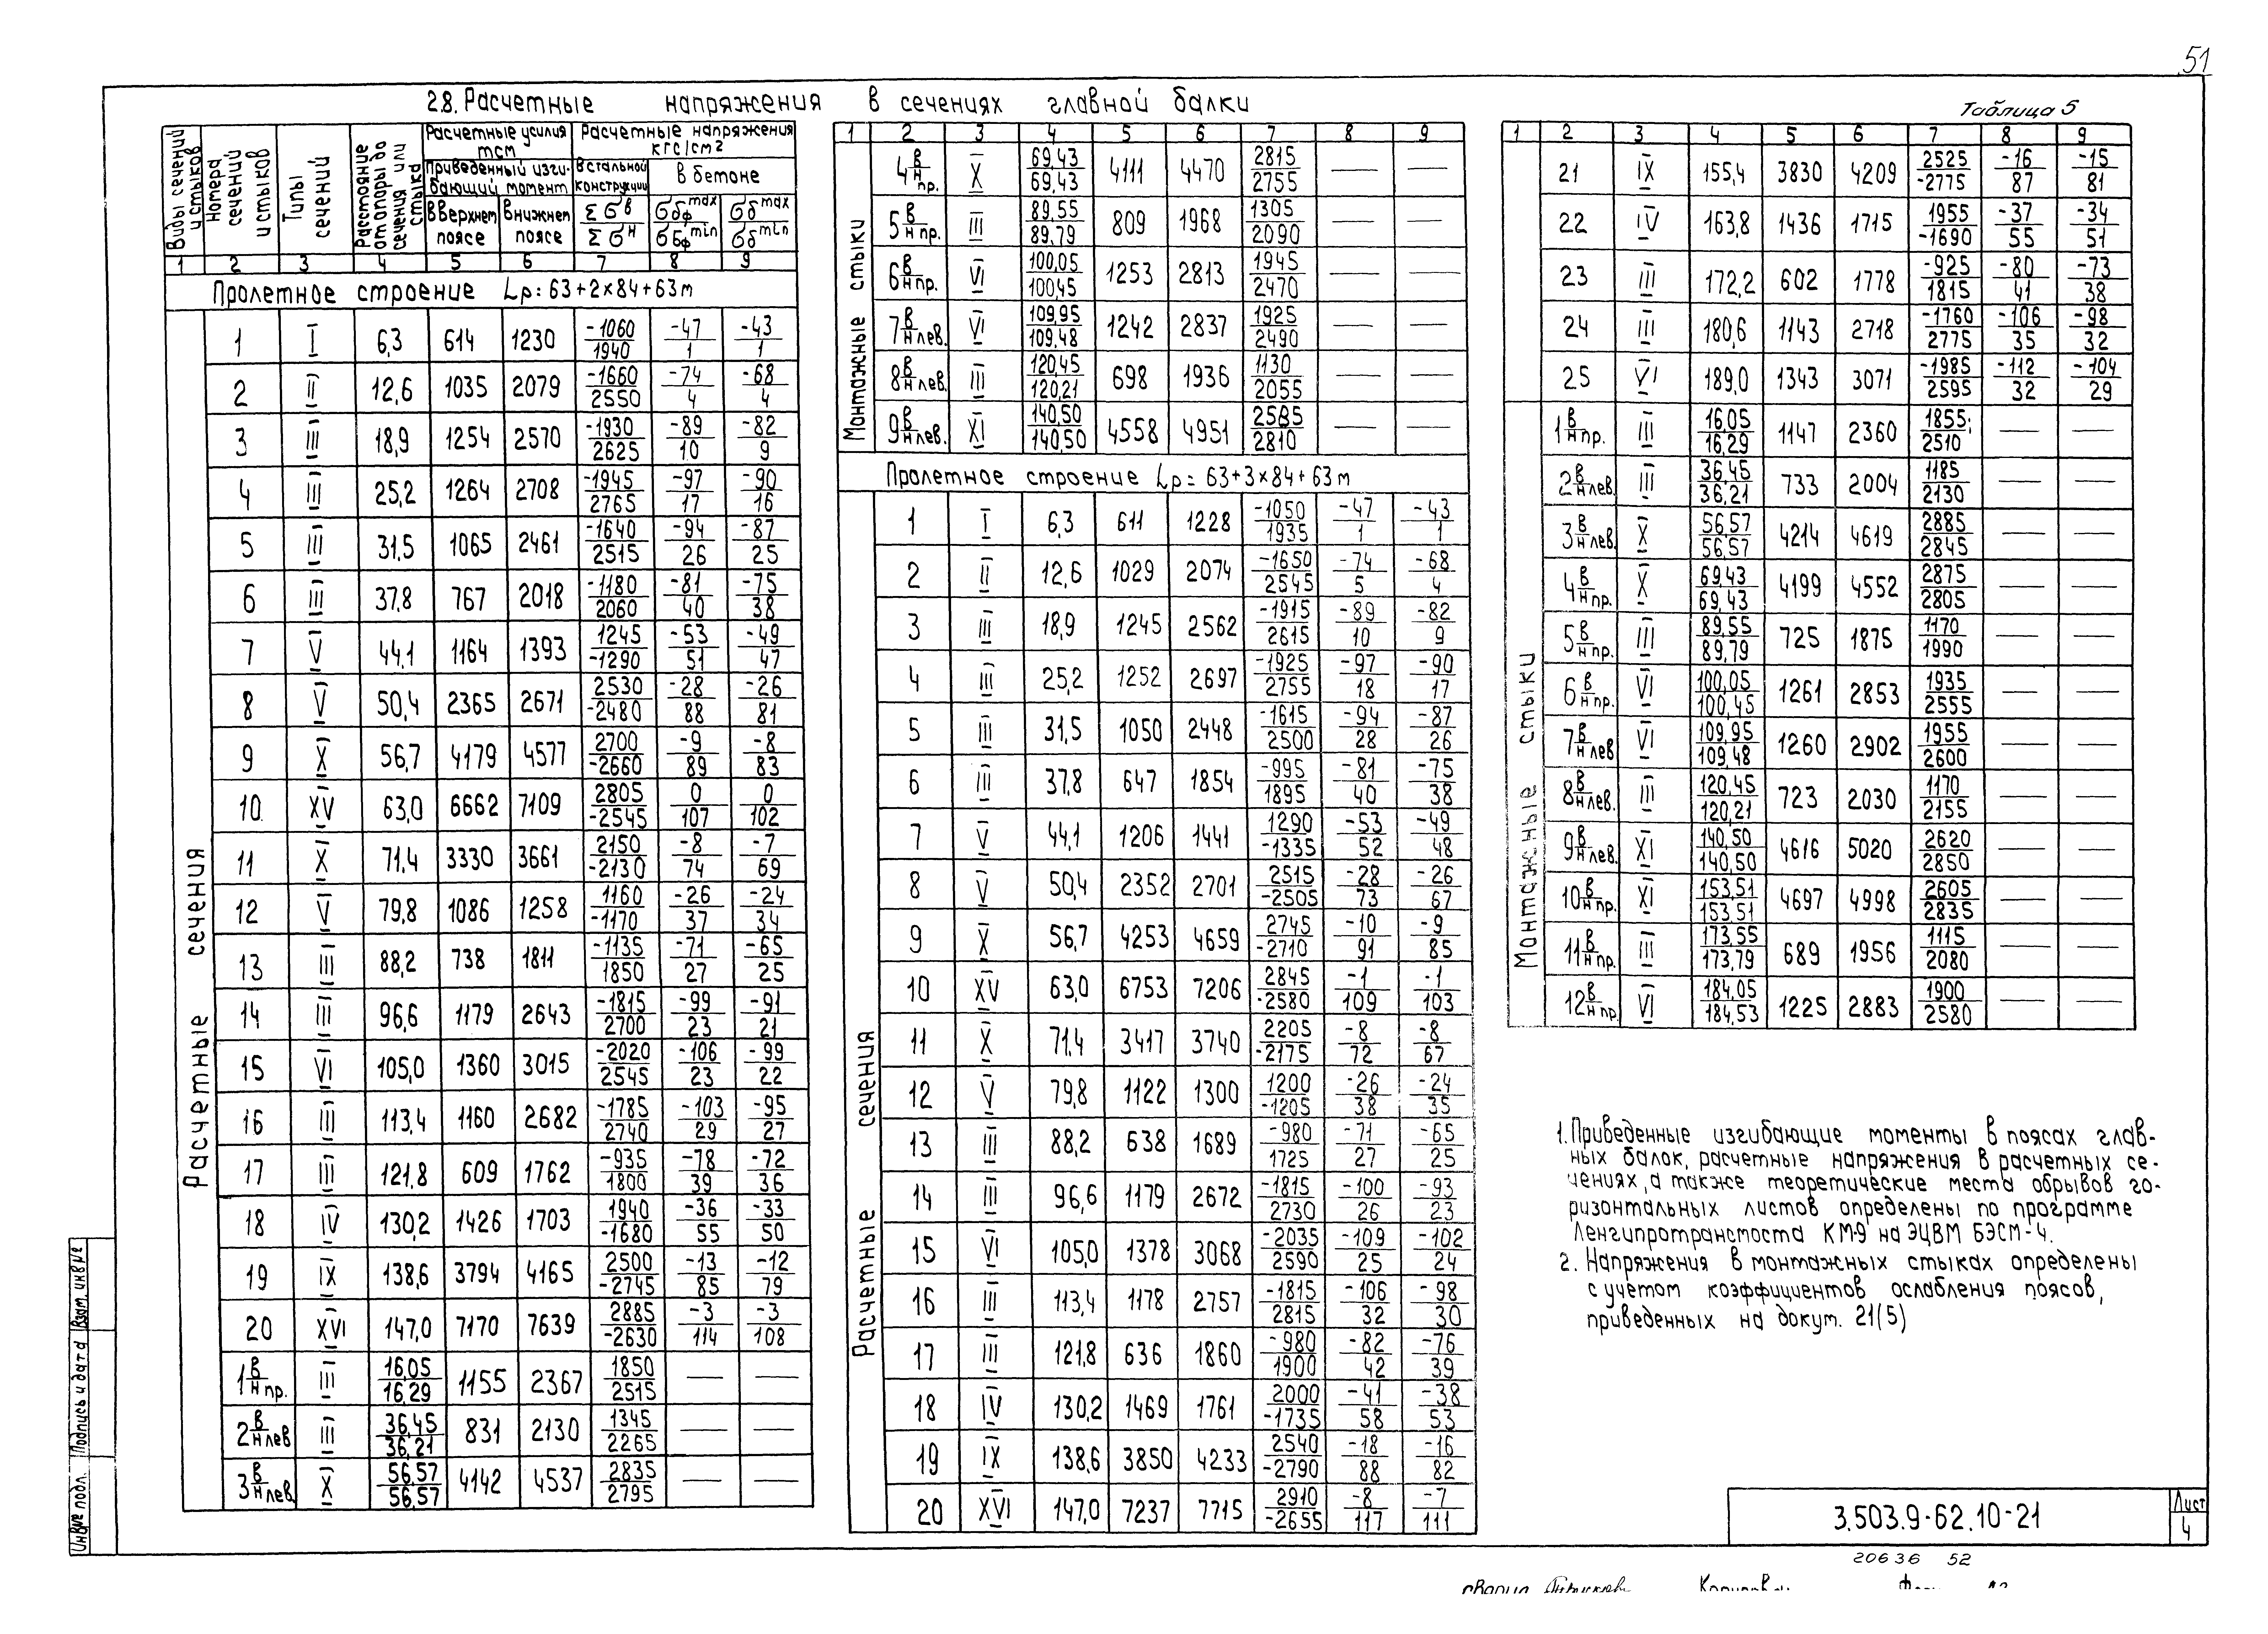 51
2.8. Расчетные напряжения в сечениях главной балки
Таблица 5
Виды сечений и стыков | Номера сечений и стыков | Типы сечений | Расстояние от опоры до сечения или стыка | Расчетные усилия тсм | Расчетные напряжения кгс/см²
Приведенный изгибающий момент | В стальной конструкции | в бетоне
в верхнем поясе | в нижнем поясе | Σσв / Σσн | σбф max / σбф min | σб max / σб min
1 2 3 4 5 6 7 8 9
Пролетное строение Lp: 63+2×84+63м
Расчетные сечения
1 I 6,3 614 1230 -1060/1940 -47/1 -43/1
2 II 12,6 1035 2079 -1660/2550 -74/4 -68/4
3 III 18,9 1254 2570 -1930/2625 -89/10 -82/9
4 III 25,2 1264 2708 -1945/2765 -97/17 -90/16
5 III 31,5 1065 2461 -1640/2515 -94/26 -87/25
6 III 37,8 767 2018 -1180/2060 -81/40 -75/38
7 V 44,1 1164 1393 1245/-1290 -53/51 -49/47
8 V 50,4 2365 2671 2530/-2480 -28/88 -26/81
9 X 56,7 4179 4577 2700/-2660 -9/89 -8/83
10 XV 63,0 6662 7109 2805/-2545 0/107 0/102
11 X 71,4 3330 3661 2150/-2130 -8/74 -7/69
12 V 79,8 1086 1258 1160/-1170 -26/37 -24/34
13 III 88,2 738 1811 -1135/1850 -71/27 -65/25
14 III 96,6 1179 2643 -1815/2700 -99/23 -91/21
15 VI 105,0 1360 3015 -2020/2545 -106/23 -99/22
16 III 113,4 1160 2682 -1785/2740 -103/29 -95/27
17 III 121,8 609 1762 -935/1800 -78/39 -72/36
18 IV 130,2 1426 1703 1940/-1680 -36/55 -33/50
19 IX 138,6 3794 4165 2500/-2745 -13/85 -12/79
20 XVI 147,0 7170 7639 2885/-2630 -3/114 -3/108
1 в/н пр. III 16,05/16,29 1155 2367 1850/2515 — —
2 в/н лев III 36,45/36,21 831 2130 1345/2265 — —
3 в/н лев. X 56,57/56,57 4142 4537 2835/2795 — —
1 2 3 4 5 6 7 8 9
Монтажные стыки
4 в/н пр. X 69,43/69,43 4111 4470 2815/2755 — —
5 в/н пр. III 89,55/89,79 809 1968 1305/2090 — —
6 в/н пр. VI 100,05/100,45 1253 2813 1945/2470 — —
7 в/н лев. VI 109,95/109,48 1242 2837 1925/2490 — —
8 в/н лев. III 120,45/120,21 698 1936 1130/2055 — —
9 в/н лев. XI 140,50/140,50 4558 4951 2585/2810 — —
Пролетное строение Lp = 63+3×84+63м
Расчетные сечения
1 I 6,3 611 1228 -1050/1935 -47/1 -43/1
2 II 12,6 1029 2074 -1650/2545 -74/5 -68/4
3 III 18,9 1245 2562 -1915/2615 -89/10 -82/9
4 III 25,2 1252 2697 -1925/2755 -97/18 -90/17
5 III 31,5 1050 2448 -1615/2500 -94/28 -87/26
6 III 37,8 647 1854 -995/1895 -81/40 -75/38
7 V 44,1 1206 1441 1290/-1335 -53/52 -49/48
8 V 50,4 2352 2701 2515/-2505 -28/73 -26/67
9 X 56,7 4253 4659 2745/-2710 -10/91 -9/85
10 XV 63,0 6753 7206 2845/-2580 -1/109 -1/103
11 X 71,4 3417 3740 2205/-2175 -8/72 -8/67
12 V 79,8 1122 1300 1200/-1205 -26/38 -24/35
13 III 88,2 638 1689 -980/1725 -71/27 -65/25
14 III 96,6 1179 2672 -1815/2730 -100/26 -93/23
15 VI 105,0 1378 3068 -2035/2590 -109/25 -102/24
16 III 113,4 1178 2757 -1815/2815 -106/32 -98/30
17 III 121,8 636 1860 -980/1900 -82/42 -76/39
18 IV 130,2 1469 1761 2000/-1735 -41/58 -38/53
19 IX 138,6 3850 4233 2540/-2790 -18/88 -16/82
20 XVI 147,0 7237 7715 2910/-2655 -8/117 -7/111
1 2 3 4 5 6 7 8 9
21 IX 155,4 3830 4209 2525/-2775 -16/87 -15/81
22 IV 163,8 1436 1715 1955/-1690 -37/55 -34/51
23 III 172,2 602 1778 -925/1815 -80/41 -73/38
24 III 180,6 1143 2718 -1760/2775 -106/35 -98/32
25 VI 189,0 1343 3071 -1985/2595 -112/32 -104/29
Монтажные стыки
1 в/н пр. III 16,05/16,29 1147 2360 1855/2510 — —
2 в/н лев. III 36,45/36,21 733 2004 1185/2130 — —
3 в/н лев. X 56,57/56,57 4214 4619 2885/2845 — —
4 в/н пр. X 69,43/69,43 4199 4552 2875/2805 — —
5 в/н пр. III 89,55/89,79 725 1875 1170/1990 — —
6 в/н пр. VI 100,05/100,45 1261 2853 1935/2555 — —
7 в/н лев VI 109,95/109,48 1260 2902 1955/2600 — —
8 в/н лев. III 120,45/120,21 723 2030 1170/2155 — —
9 в/н лев. XI 140,50/140,50 4616 5020 2620/2850 — —
10 в/н пр. XI 153,51/153,51 4697 4998 2605/2835 — —
11 в/н пр. III 173,55/173,79 689 1956 1115/2080 — —
12 в/н пр. VI 184,05/184,53 1225 2883 1900/2580 — —
1. Приведенные изгибающие моменты в поясах глав-
ных балок, расчетные напряжения в расчетных се-
чениях, а также теоретические места обрывов го-
ризонтальных листов определены по программе
Ленгипротрансмоста КМ-9 на ЭЦВМ БЭСМ-4.
2. Напряжения в монтажных стыках определены
с учетом коэффициентов ослабления поясов,
приведенных на докум. 21(5)
Инв№ подл. Подпись и дата Взам. инв №
3.503.9-62.10-21
Лист
4
20636 52